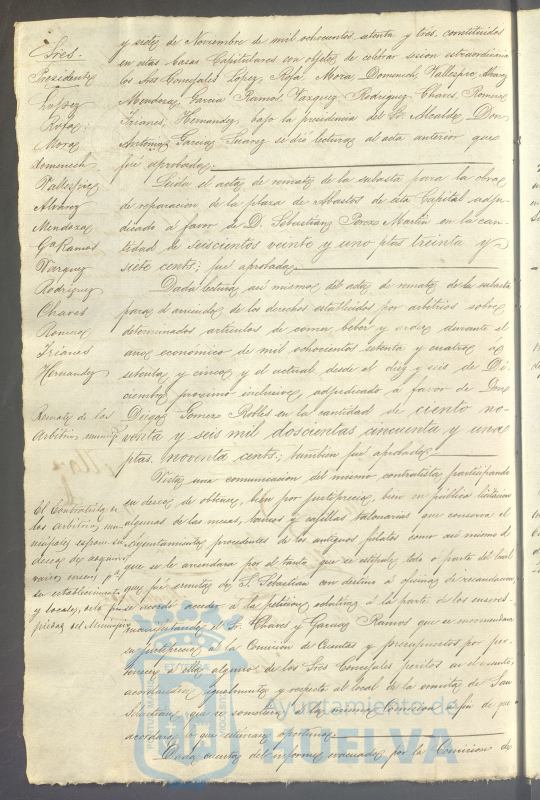 Sres.
Presidente
Lopez
Rofa
Mora
Domenech
Vallespin
Alvarez
Mendoza
Ga Ramos
Vazquez
Rodriguez
Chaves
Romero
Trianes
Hernandez
y siete de Noviembre de mil ochocientos setenta y tres, constituidos
en estas Casas Capitulares con objeto de celebrar sesion estraordinaria
los Sres Concejales Lopez, Rofa, Mora, Domenech, Vallespin, Alvarez
Mendoza, Garcia Ramos, Vazquez, Rodriguez, Chaves, Romero
Trianes, Hernandez bajo la presidencia del Sr. Alcalde, Don
Antonio Garcia Suarez se dió lectura al acta anterior que
fué aprobada.
Leida el acta de remate de la subasta para la obra
de reparacion de la plaza de Abastos de esta Capital adju-
dicado á favor de D. Sebastian Perez Martin en la can-
tidad de seiscientos veinte y uno ptas treinta y
siete cents; fué aprobada.
Dada lectura asi mismo del acta de remate de la subasta
para el arriendo de los derechos establecidos por arbitrios sobre
determinados articulos de comer, beber y arder durante el
año económico de mil ochocientos setenta y cuatro á
setenta y cinco y el actual desde el diez y seis de Di-
ciembre proximo inclusive, adjudicado á favor de Don
Remate de los
arbitrios municip.
Diego Gomez Robles en la cantidad de ciento no-
venta y seis mil doscientas cincuenta y una
ptas. noventa cents.; tambien fué aprobada.
Vista una comunicacion del mismo contratista participando
El Contratista de
los arbitrios mu-
nicipales espone su
deseo de adquirir
varios enseres pa
su establecimiento
y locales, de la pro-
piedad del Municipio
su deseo de obtener, bien por justiprecio, bien en publica licitacion
algunas de las mesas, bancos y casillas talonarias que conserva el
Ayuntamiento procedentes de los antiguos fielatos como asi mismo el
que se le arrendara por el tanto que se estipule, todo ó parte del local
que fué ermita de S. Sebastian con destino á oficinas de recaudacion,
se acordó acceder á la peticion relativa á la parte de los enseres
manifestando el Sr. Chaves y Garcia Ramos que se encomendara
su justiprecio á la Comision de Cuentas y presupuestos por per-
tenecer á ella algunos de los Sres Concejales peritos en el asunto,
acordandose igualmente y respecto al local de la ermita de San
Sebastian que se sometiera á la misma Comision á fin de que
acordara lo que estimara oportuno.
Dada cuenta del informe evacuado por la Comision de
Ayuntamiento de
HUELVA